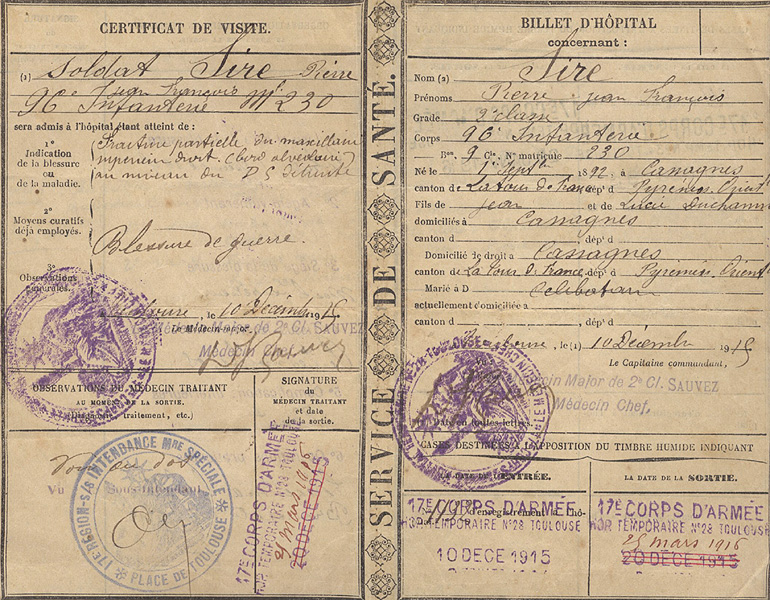 CERTIFICAT DE VISITE.
(2) Soldat Sire Pierre
jean François
96e Infanterie Mle 230
sera admis à l'hôpital étant atteint de :
1°
Indication
de la blessure
ou
de la maladie.
Fracture partielle du maxillaire
superieur droit (bord alvéolaire)
au niveau du
2°
Moyens curatifs
déjà employés.
Blessure de guerre.
3°
Observations
générales.
le 10 Décembre 1915
Le Médecin-major
Médecin Major de 2e Cl. SAUVEZ
Médecin Chef,
OBSERVATIONS DU MÉDECIN TRAITANT
AU MOMENT DE LA SORTIE.
(Diagnostic, traitement, etc.)
SIGNATURE
du
MÉDECIN TRAITANT
et date
de la sortie.
Vu
Sous-Intendant
17e RÉGION - S/S INTENDANCE MRE SPÉCIALE
PLACE DE TOULOUSE
17E CORPS D'ARMÉE
HOP. TEMPORAIRE N°28 TOULOUSE
25 mars 1916
20 DECE 1915
SERVICE DE SANTÉ.
BILLET D'HÔPITAL
concernant :
Nom (2) Sire
Prénoms Pierre jean François
Grade 2e classe
Corps 96 Infanterie
Bon 9 Cie N° matricule 230
Né le 1 Septbre 1892 à Cassagnes
canton de Latour de France dépt d Pyrénées Orient
Fils de jean et de Lucie
domiciliés à Cassagnes
canton d dépt d
Domicilié de droit à Cassagnes
canton de La Tour de France dépt d Pyrénées Orient
Marié à D Celibataire
actuellement domiciliée à
canton d dépt d
le (1) 10 Décembre 1915
Le Capitaine commandant,
Médecin Major de 2e Cl. SAUVEZ
Médecin Chef,
Date en toutes lettres.
CASES DESTINÉES À L'APPOSITION DU TIMBRE HUMIDE INDIQUANT
LA DATE DE L'ENTRÉE.
LA DATE DE LA SORTIE.
17E CORPS D'ARMÉE
HOP. TEMPORAIRE N°28 TOULOUSE
10 DECE 1915
17E CORPS D'ARMÉE
HOP. TEMPORAIRE N°28 TOULOUSE
25 mars 1916
20 DECE 1915